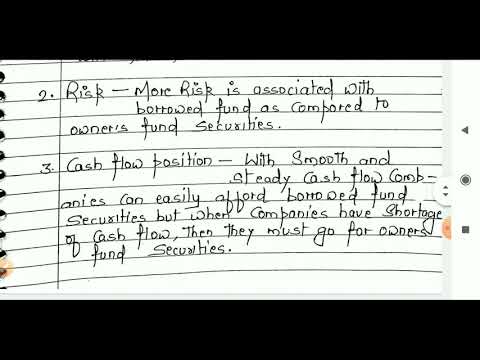 2. Risk - More Risk is associated with
borrowed fund as compared to
owner's fund securities.
3. Cash flow position - With smooth and
steady cash flow comp-
anies can easily afford borrowed fund
securities but when companies have shortage
of cash flow, then they must go for owners
fund securities.